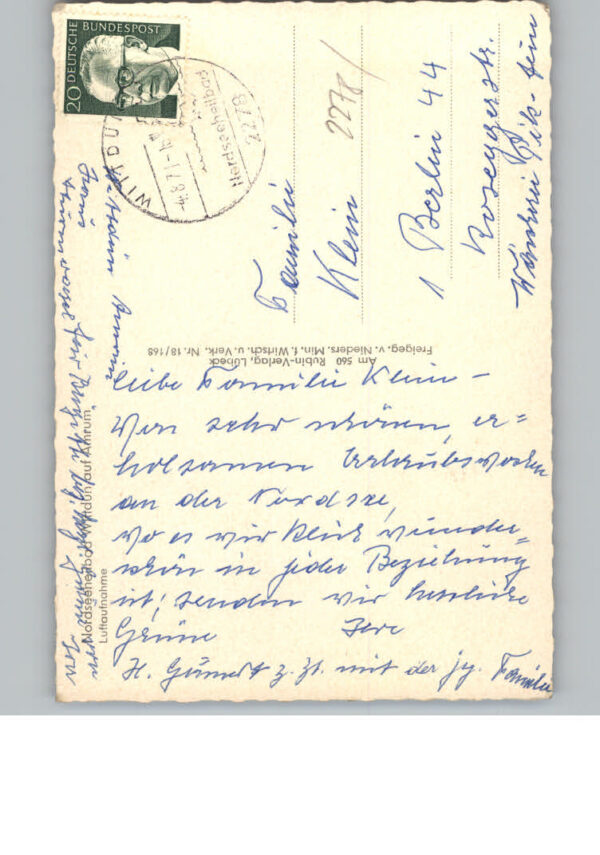 20 DEUTSCHE BUNDESPOST
WITTDÜ
-4.8.71-16
Nordseeheilbad
2278
2278
Familie
Klein
1 Berlin 44
Roseggerstr.
Am 560 Rubin-Verlag, Lübeck
Freigeg. v. Nieders. Min. f. Wirtsch. u. Verk. Nr. 18/168
Nordseeheilbad Wittdün auf Amrum
Luftaufnahme
Liebe Familie Klein –
Von sehr schönen, er=
holsamen Urlaubswochen
an der Nordsee,
wo es wirklich wunder=
schön in jeder Beziehung
ist, senden wir herzliche
Grüße Ihre
H. z. Zt. mit der jg. Familie